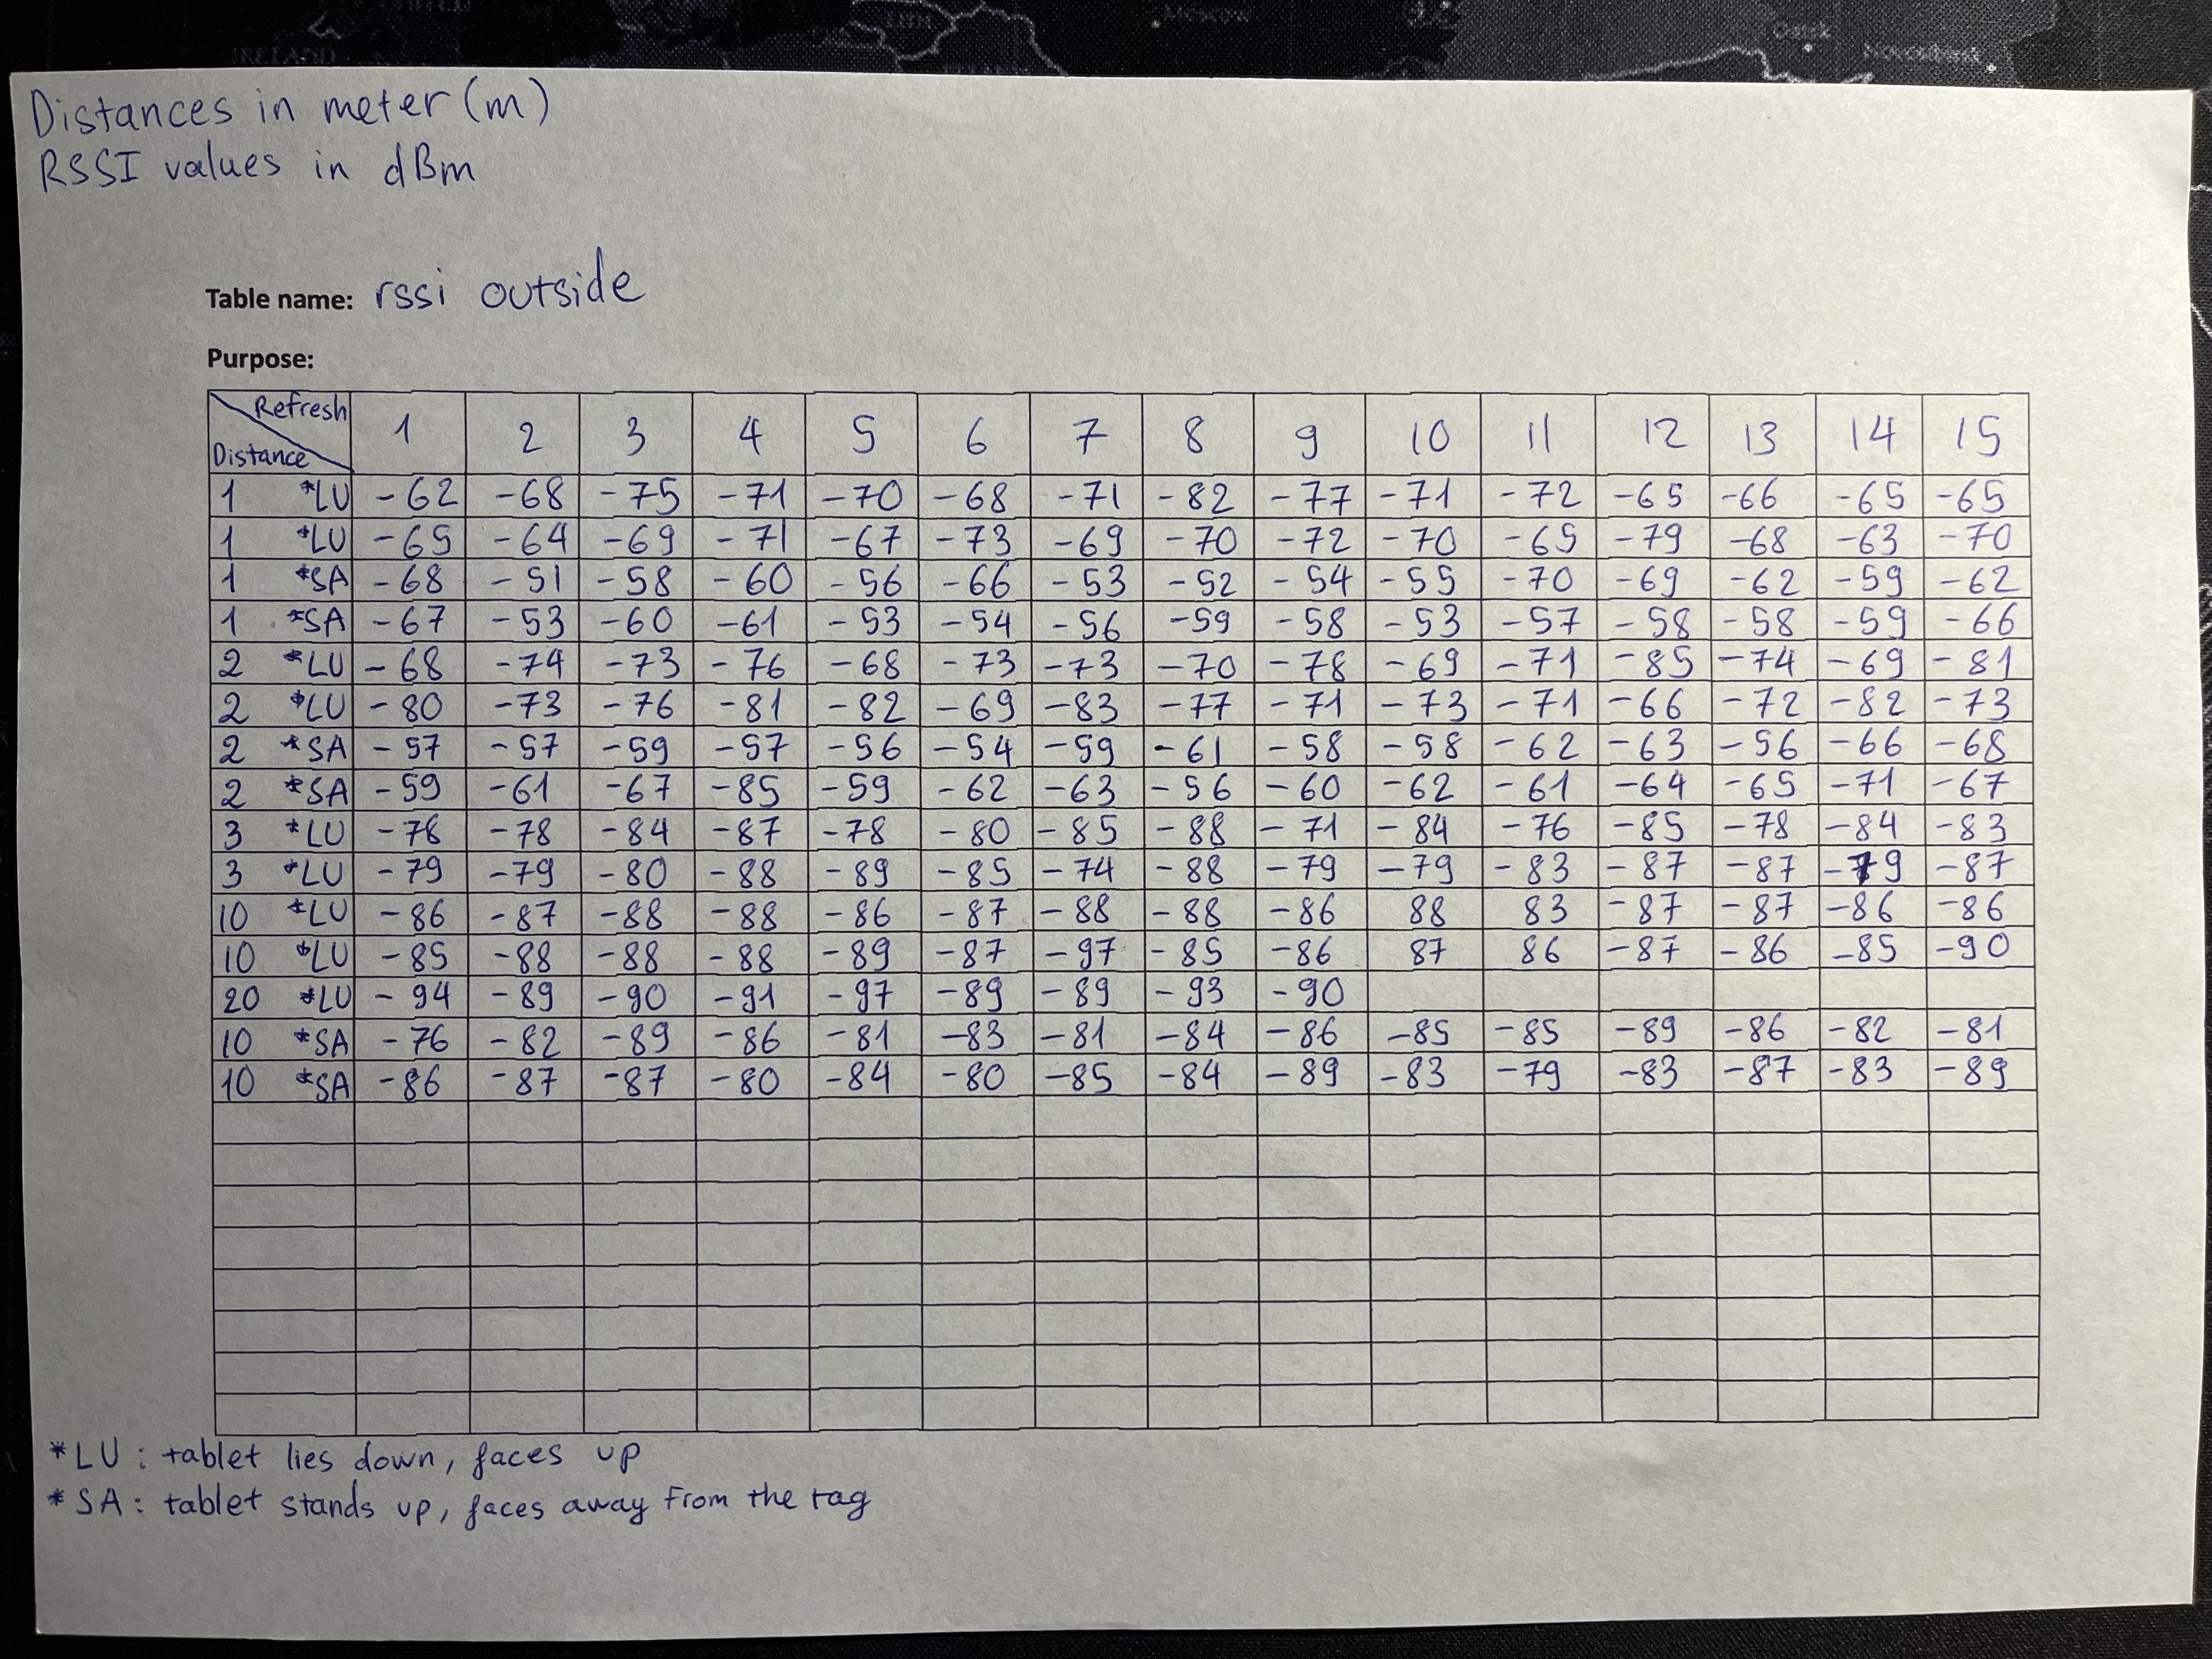 IRELAND
Moscow
Omsk
Novosibirsk
Distances in meter (m)
RSSI values in dBm
Table name: rssi outside
Purpose:
Refresh 1 2 3 4 5 6 7 8 9 10 11 12 13 14 15
Distance
1 *LU -62 -68 -75 -71 -70 -68 -71 -82 -77 -71 -72 -65 -66 -65 -65
1 *LU -65 -64 -69 -71 -67 -73 -69 -70 -72 -70 -65 -79 -68 -63 -70
1 *SA -68 -51 -58 -60 -56 -66 -53 -52 -54 -55 -70 -69 -62 -59 -62
1 *SA -67 -53 -60 -61 -53 -54 -56 -59 -58 -53 -57 -58 -58 -59 -66
2 *LU -68 -74 -73 -76 -68 -73 -73 -70 -78 -69 -71 -85 -74 -69 -81
2 *LU -80 -73 -76 -81 -82 -69 -83 -77 -71 -73 -71 -66 -72 -82 -73
2 *SA -57 -57 -59 -57 -56 -54 -59 -61 -58 -58 -62 -63 -56 -66 -68
2 *SA -59 -61 -67 -85 -59 -62 -63 -56 -60 -62 -61 -64 -65 -71 -67
3 *LU -76 -78 -84 -87 -78 -80 -85 -88 -71 -84 -76 -85 -78 -84 -83
3 *LU -79 -79 -80 -88 -89 -85 -74 -88 -79 -79 -83 -87 -87 -79 -87
10 *LU -86 -87 -88 -88 -86 -87 -88 -88 -86 88 83 -87 -87 -86 -86
10 *LU -85 -88 -88 -88 -89 -87 -97 -85 -86 87 86 -87 -86 -85 -90
20 *LU -94 -89 -90 -91 -97 -89 -89 -93 -90
10 *SA -76 -82 -89 -86 -81 -83 -81 -84 -86 -85 -85 -89 -86 -82 -81
10 *SA -86 -87 -87 -80 -84 -80 -85 -84 -89 -83 -79 -83 -87 -83 -89
*LU : tablet lies down, faces up
*SA : tablet stands up, faces away from the tag